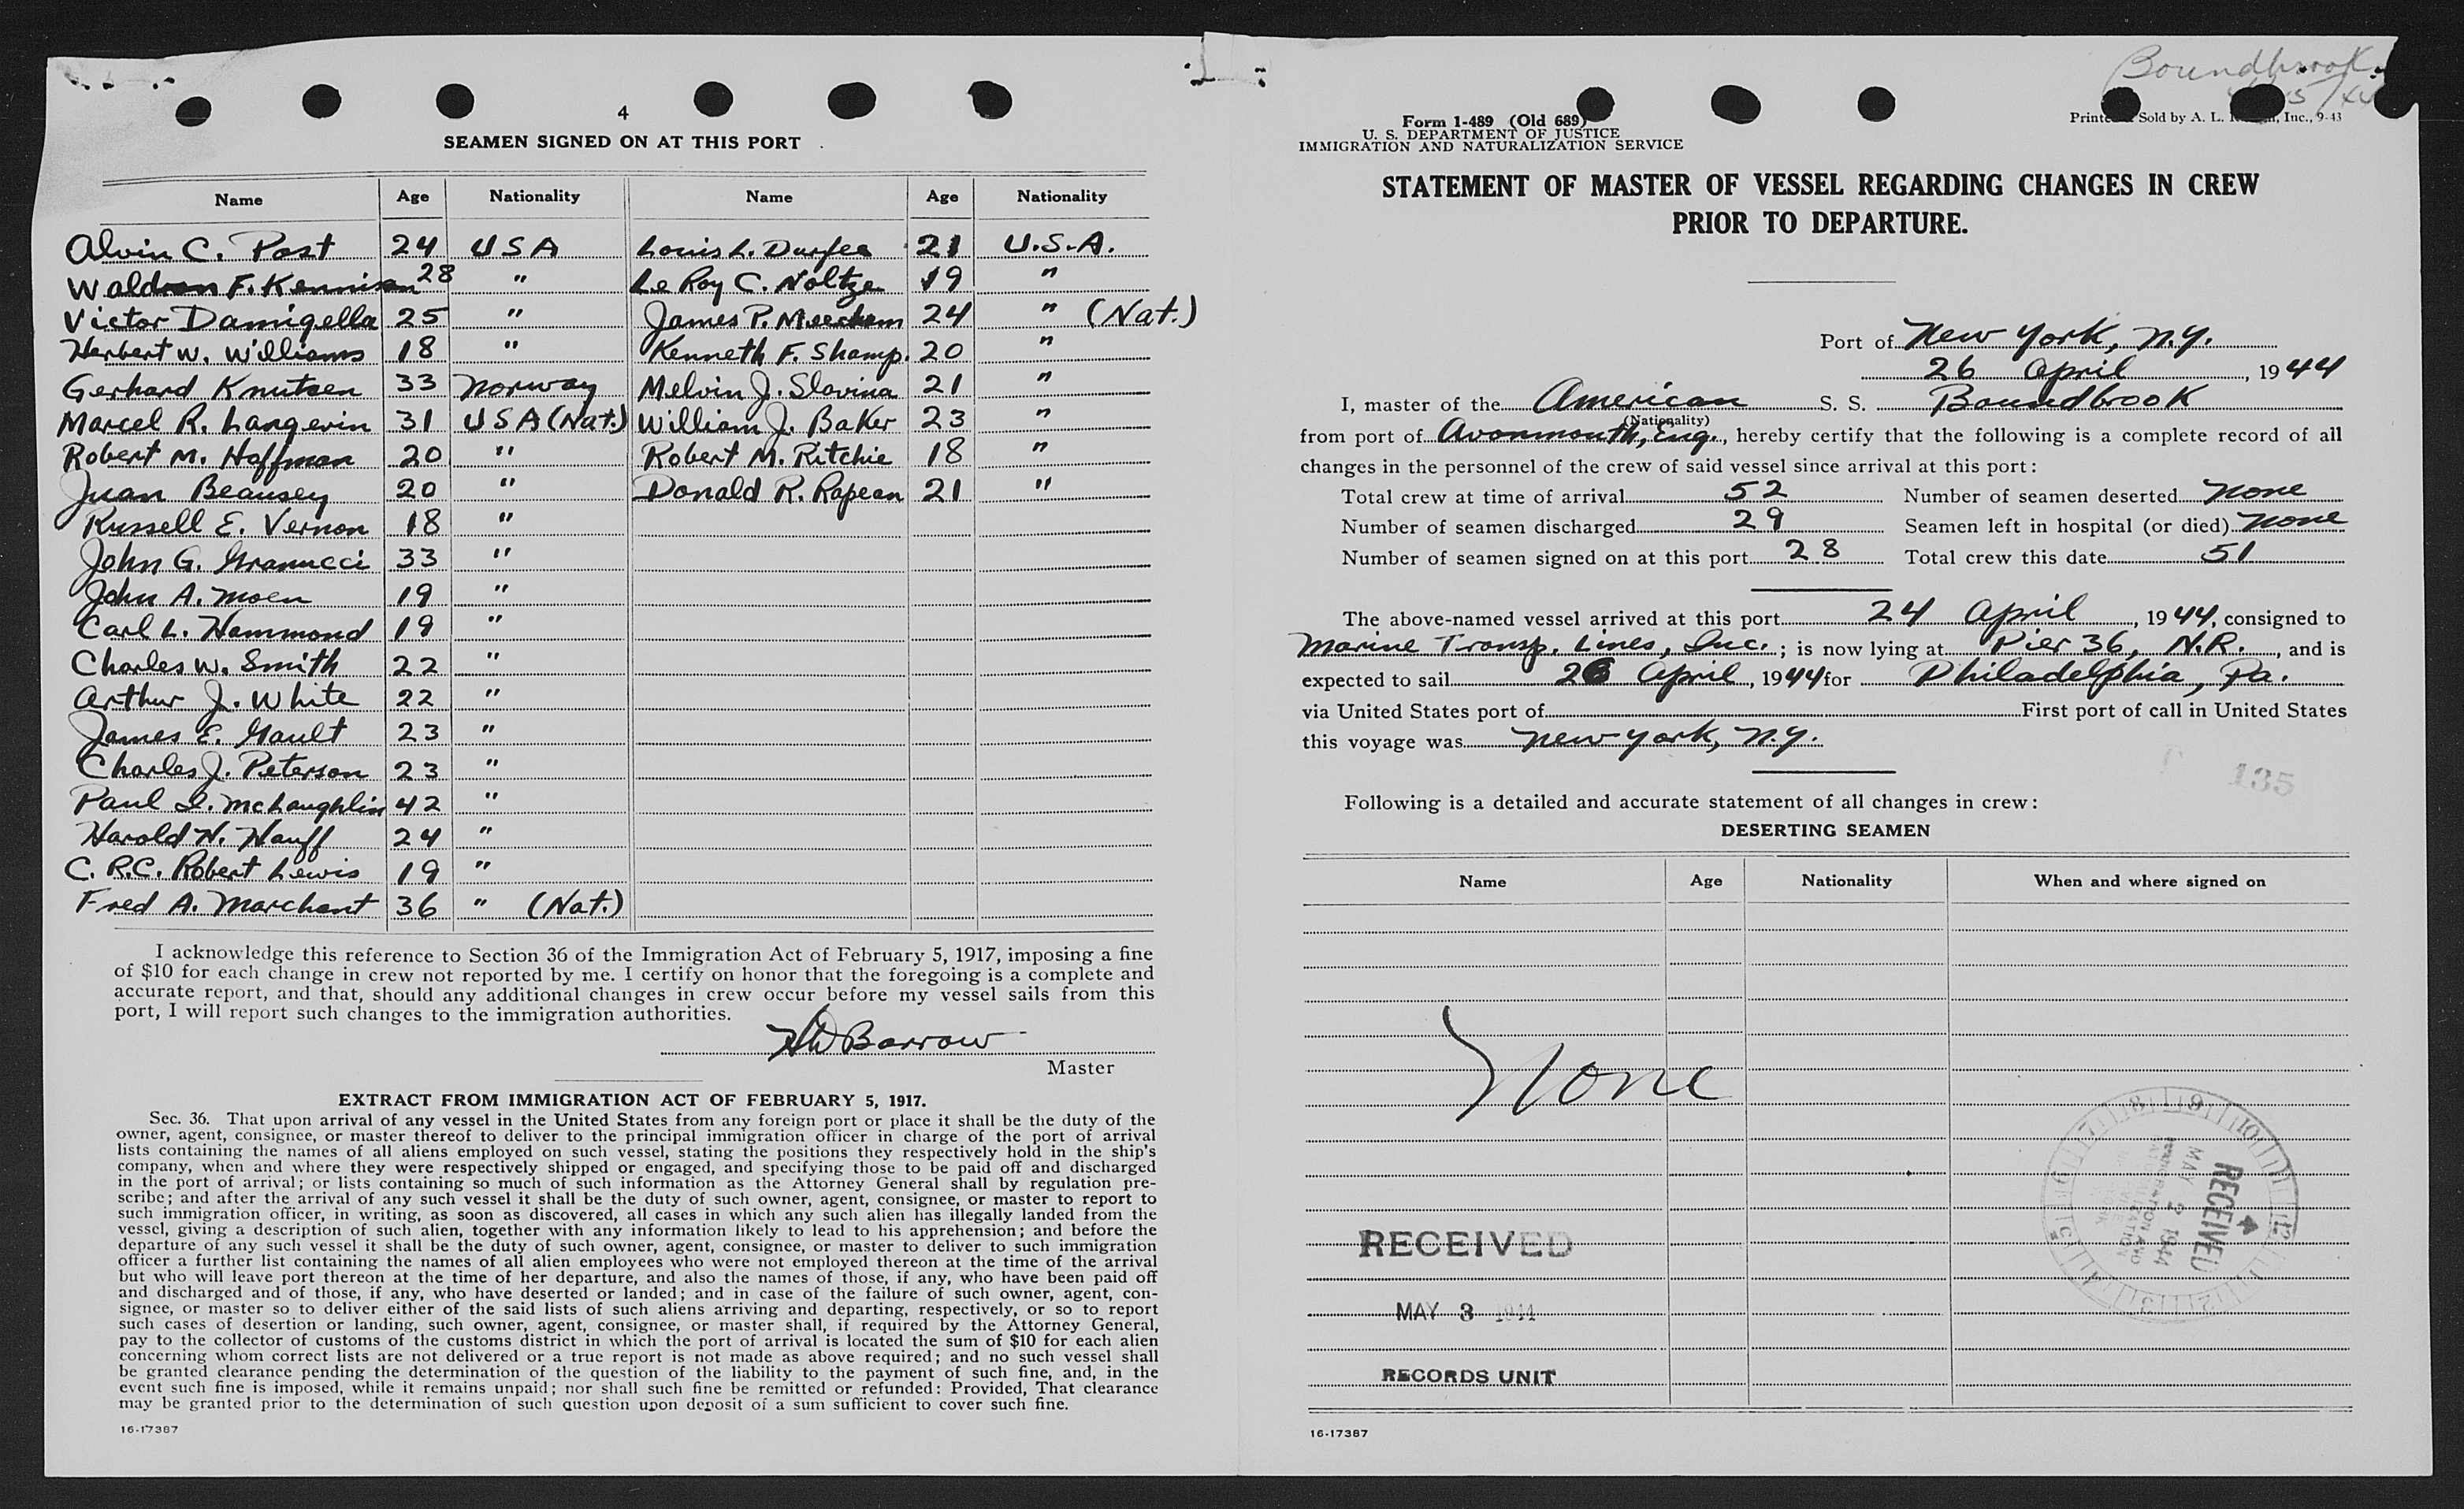 4
SEAMEN SIGNED ON AT THIS PORT
Name Age Nationality Name Age Nationality
Alvin C. Post 24 USA Louis L. Durfee 21 U.S.A.
Waldron F. Kennison 28 " Le Roy C. Noltze 19 "
Victor Damigella 25 " James P. Meecham 24 " (Nat.)
Herbert W. Williams 18 " Kenneth F. Shamp. 20 "
Gerhard Knutsen 33 Norway Melvin J. Slavina 21 "
Marcel R. Langevin 31 USA (Nat.) William J. Baker 23 "
Robert M. Hoffman 20 " Robert M. Ritchie 18 "
Juan Beausey 20 " Donald R. Rapean 21 "
Russell E. Vernon 18 "
John G. Granucci 33 "
John A. Moen 19 "
Carl L. Hammond 19 "
Charles W. Smith 22 "
Arthur J. White 22 "
James E. Gault 23 "
Charles J. Peterson 23 "
Paul I. McLaughlin 42 "
Harold H. Hauff 24 "
C. R.C. Robert Lewis 19 "
Fred A. Marchant 36 " (Nat.)
I acknowledge this reference to Section 36 of the Immigration Act of February 5, 1917, imposing a fine
of $10 for each change in crew not reported by me. I certify on honor that the foregoing is a complete and
accurate report, and that, should any additional changes in crew occur before my vessel sails from this
port, I will report such changes to the immigration authorities.
HW Barrow
Master
EXTRACT FROM IMMIGRATION ACT OF FEBRUARY 5, 1917.
Sec. 36. That upon arrival of any vessel in the United States from any foreign port or place it shall be the duty of the
owner, agent, consignee, or master thereof to deliver to the principal immigration officer in charge of the port of arrival
lists containing the names of all aliens employed on such vessel, stating the positions they respectively hold in the ship's
company, when and where they were respectively shipped or engaged, and specifying those to be paid off and discharged
in the port of arrival; or lists containing so much of such information as the Attorney General shall by regulation pre-
scribe; and after the arrival of any such vessel it shall be the duty of such owner, agent, consignee, or master to report to
such immigration officer, in writing, as soon as discovered, all cases in which any such alien has illegally landed from the
vessel, giving a description of such alien, together with any information likely to lead to his apprehension; and before the
departure of any such vessel it shall be the duty of such owner, agent, consignee, or master to deliver to such immigration
officer a further list containing the names of all alien employees who were not employed thereon at the time of the arrival
but who will leave port thereon at the time of her departure, and also the names of those, if any, who have been paid off
and discharged and of those, if any, who have deserted or landed; and in case of the failure of such owner, agent, con-
signee, or master so to deliver either of the said lists of such aliens arriving and departing, respectively, or so to report
such cases of desertion or landing, such owner, agent, consignee, or master shall, if required by the Attorney General,
pay to the collector of customs of the customs district in which the port of arrival is located the sum of $10 for each alien
concerning whom correct lists are not delivered or a true report is not made as above required; and no such vessel shall
be granted clearance pending the determination of the question of the liability to the payment of such fine, and, in the
event such fine is imposed, while it remains unpaid; nor shall such fine be remitted or refunded: Provided, That clearance
may be granted prior to the determination of such question upon deposit of a sum sufficient to cover such fine.
16-17387
Boundbrook
Form 1-489 (Old 689)
U. S. DEPARTMENT OF JUSTICE
IMMIGRATION AND NATURALIZATION SERVICE
Sold by A. L. Inc., 9-43
STATEMENT OF MASTER OF VESSEL REGARDING CHANGES IN CREW
PRIOR TO DEPARTURE.
Port of New York, N.Y.
26 April, 1944
I, master of the American S. S. Boundbrook
(Nationality)
from port of Avonmouth, Eng., hereby certify that the following is a complete record of all
changes in the personnel of the crew of said vessel since arrival at this port:
Total crew at time of arrival 52 Number of seamen deserted None
Number of seamen discharged 29 Seamen left in hospital (or died) None
Number of seamen signed on at this port 28 Total crew this date 51
The above-named vessel arrived at this port 24 April, 1944, consigned to
Marine Transp. Lines, Inc.; is now lying at Pier 36, N.R., and is
expected to sail 26 April, 1944 for Philadelphia, Pa.
via United States port of First port of call in United States
this voyage was New York, N.Y.
135
Following is a detailed and accurate statement of all changes in crew:
DESERTING SEAMEN
Name Age Nationality When and where signed on
None
RECEIVED
MAY 2 1944
RECEIVED
MAY 3 1944
RECORDS UNIT
16-17387